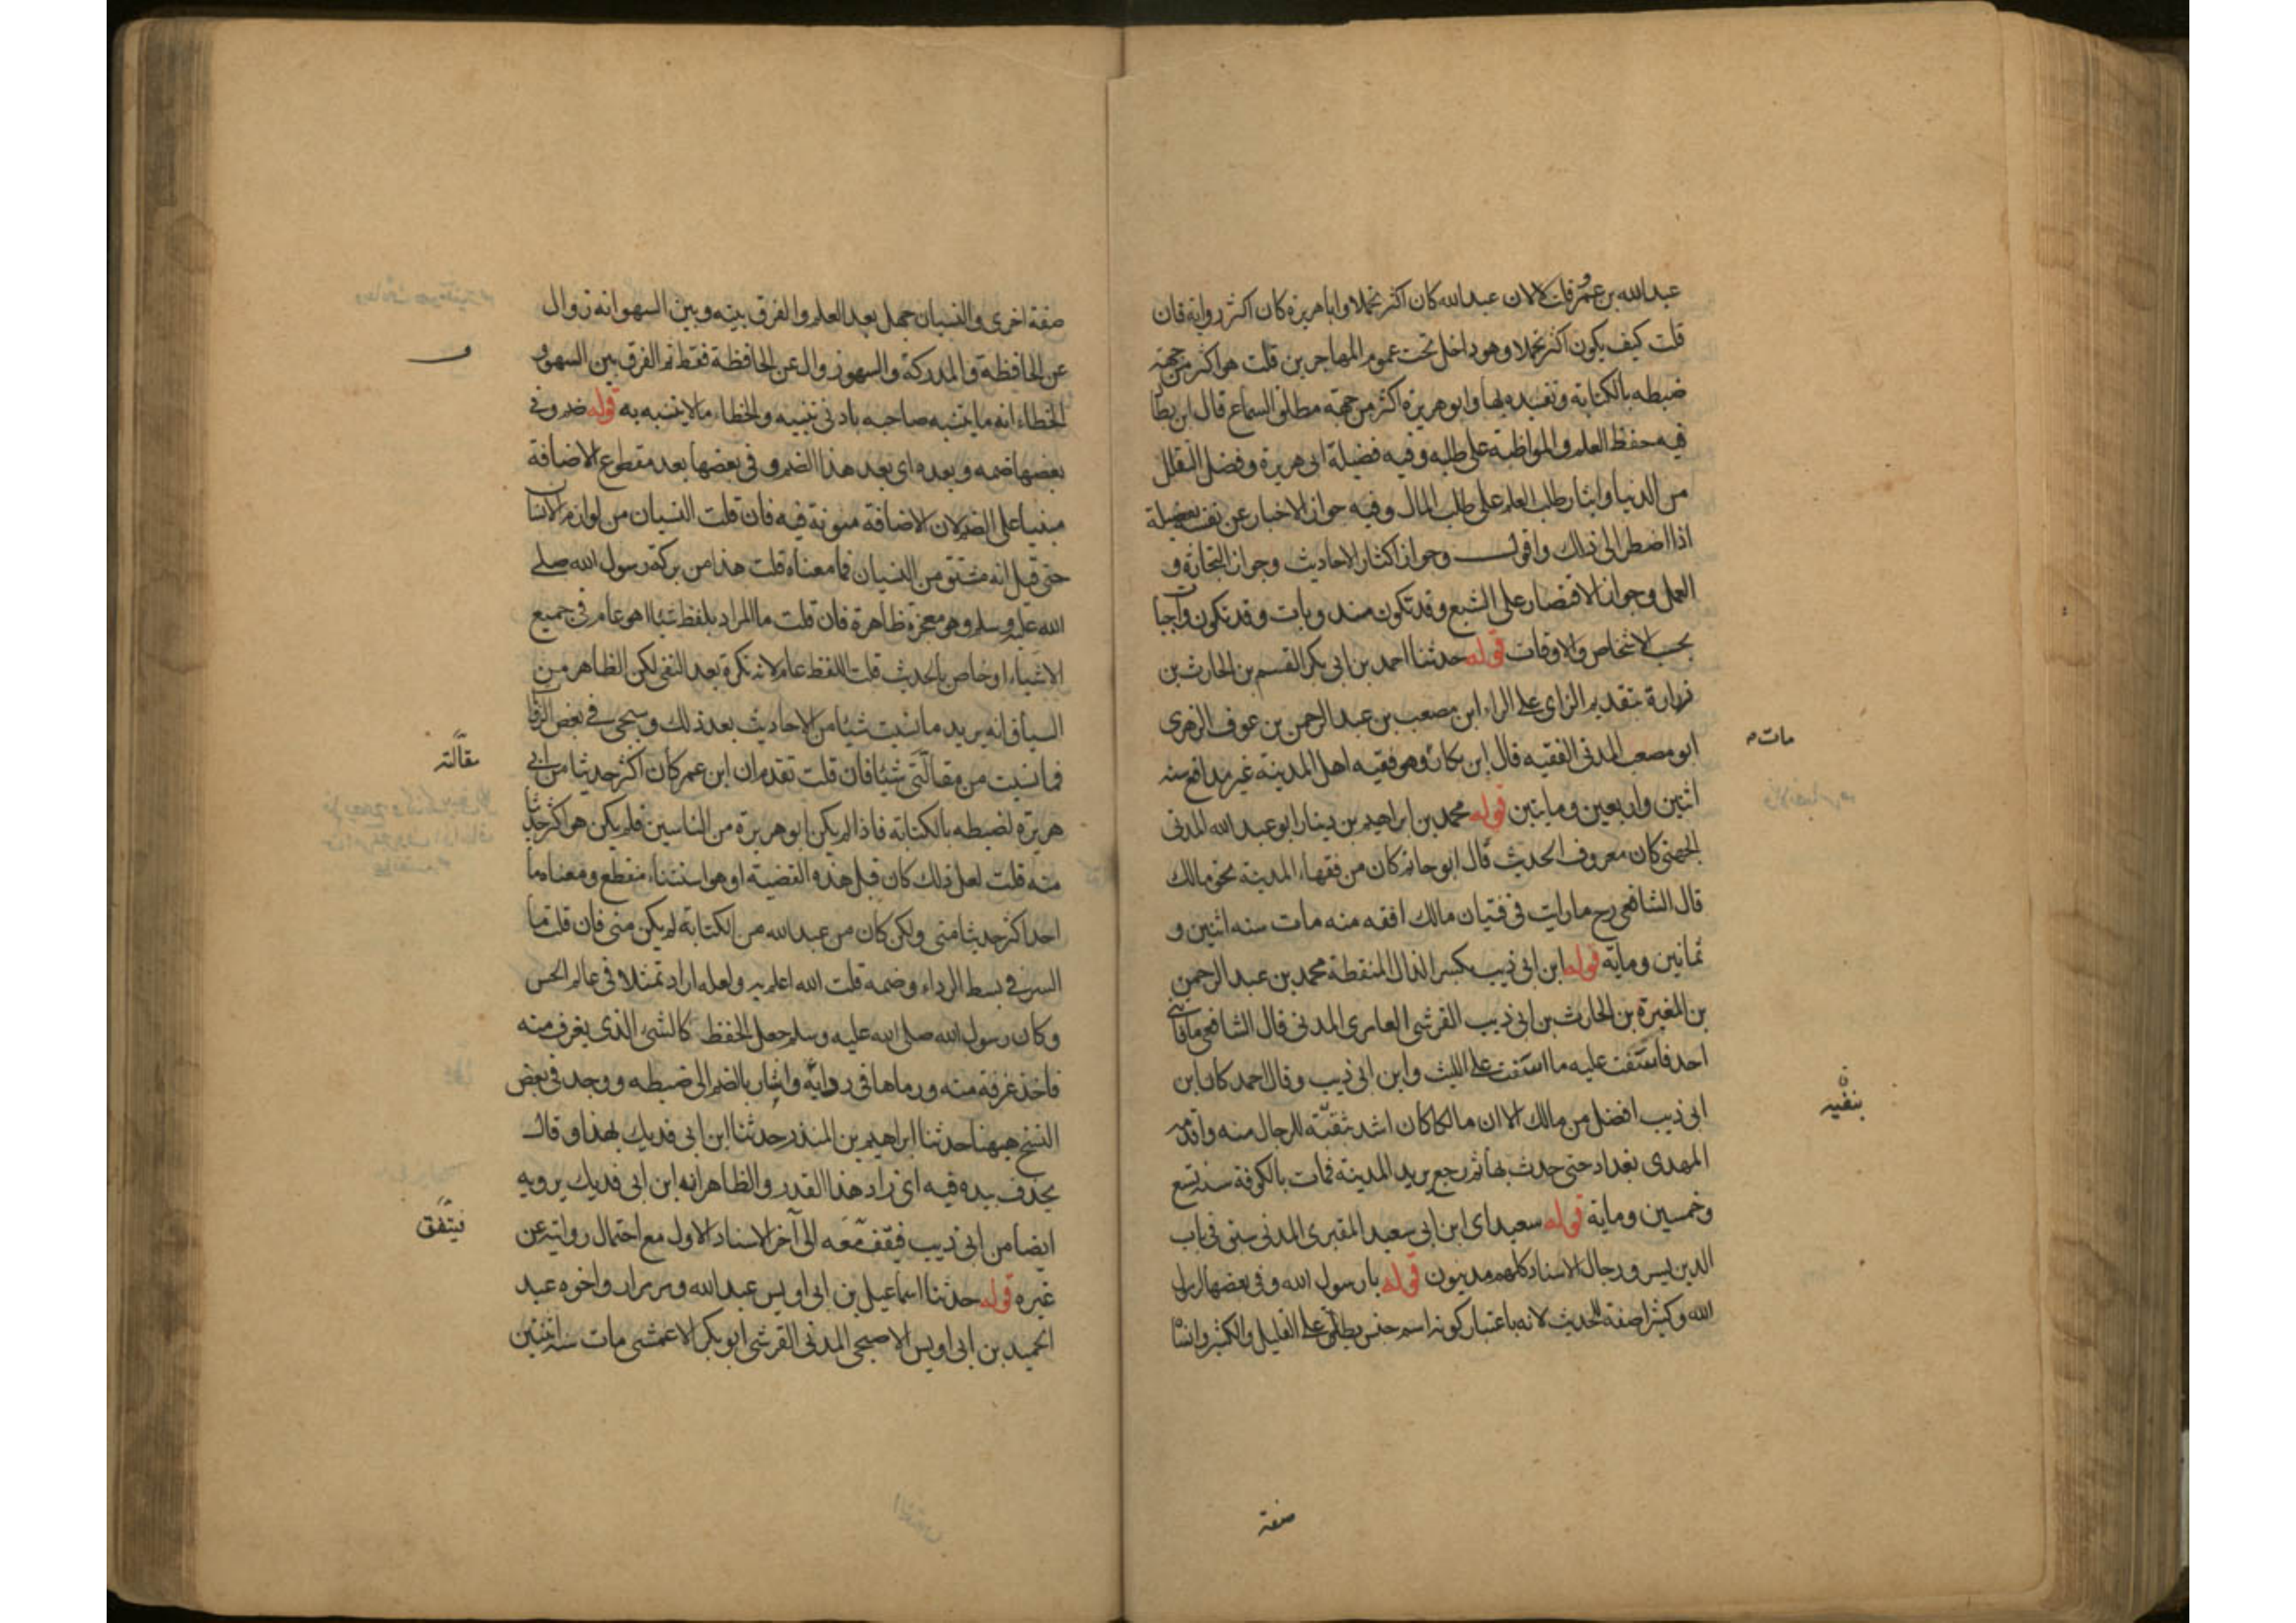 عبد الله بن عمرو قلت لا لان عبد الله كان اكثر تحملا وابا هريرة كان اكثر رواية فان
قلت كيف يكون اكثر تحملا وهو داخل تحت عموم المهاجرين قلت هو اكثر من جهة
ضبطه بالكتابة وتقييده بها وابو هريرة اكثر من جهة مطلق السماع قال ابن بطا
فيه حفظ العلم والمواظبة على طلبه وفيه فضيلة ابى هريرة وفضل التقلل
من الدنيا وايثار طلب العلم على طلب المال وفيه جواز الاخبار عن نفسه بفضيلة
اذا اضطر الى ذلك واقول وجواز اكثار الاحاديث وجواز التجارة و
العمل وجواز الاقتصار على الشبع وقد تكون مندوبات وقد تكون واجبا
بحسب الاشخاص والاوقات قوله حدثنا احمد بن ابى بكر القسم بن الحارث بن
زرارة بتقديم الزاى على الراء ابن مصعب بن عبد الرحمن بن عوف الزهرى
ابو مصعب المدنى الفقيه قال ابن بكار وهو فقيه اهل المدينة غير مدافع سنه
مات
اثنين واربعين ومايتين قوله محمد بن ابراهيم بن دينار ابو عبد الله المدنى
الجهنى كان معروف الحديث قال ابو حاتم كان من فقهاء المدينة نحو مالك
قال الشافعى رح ما رايت فى فتيان مالك افقه منه مات سنه اثنين و
ثمانين وماية قوله ابن ابى ذيب بكسر الذال المنقطة محمد بن عبد الرحمن
بن المغيرة بن الحارث بن ابى ذيب القرشى العامرى المدنى قال الشافعى ما فاتنى
احد فاسفت عليه ما اسفت على الليث وابن ابى ذيب وقال احمد كان ابن
ابى ذيب افضل من مالك الا ان مالكا كان اشد تنقية للرجال منه واقدمه
المهدى بغداد حتى حدث بها ثم رجع يريد المدينة فمات بالكوفة سنة تسع
وخمسين وماية قوله سعيد اى ابن ابى سعيد المقبرى المدنى سبق فى باب
الدين يسر ورجال الاسناد كلهم مدنيون قوله يا رسول الله وفى بعضها لرسول
الله وكثيرا صفة للحديث لانه باعتبار كونه اسم جنس يطلق على القليل والكثير وانسا
صفة
صفة اخرى والنسيان جهل بعد العلم والفرق بينه وبين السهو انه زوال
عن الحافظة والمدركة والسهو زوال عن الحافظة فقط ثم الفرق بين السهو و
الخطاء انه ما يتنبه صاحبه بادنى تنبيه والخطاء ما لا يتنبه به قوله ضم وفى
بعضها ضمه وبعده اى بعد هذا الضم وفى بعضها بعد مقطوع الاضافة
مبنيا على الضم لان الاضافة منوية فيه فان قلت النسيان من لوازم الانسا
حتى قيل انه مشتق من النسيان فما معناه قلت هذا من بركة رسول الله صلى
الله عليه وسلم وهو معجزة ظاهرة فان قلت ما المراد بلفظ شيئا اهو عام فى جميع
الاشياء او خاص بالحديث قلت اللفظ عام لانه نكرة بعد النفى لكن الظاهر من
السياق انه يريد ما نسيت شيئا من الاحاديث بعد ذلك وسيجى فى بعض الروا
فما نسيت من مقالتى شيئا فان قلت تقدم ان ابن عمر كان اكثر حديثا من ابى
مقالته
هريرة لضبطه بالكتابة فاذا لم يكن ابو هريرة من الناسين فلم يكن هو اكثر حديثا
منه قلت لعل ذلك كان قبل هذه القضية او هو استثناء منقطع ومعناه ما
احد اكثر حديثا منى ولكن كان من عبد الله من الكتابة لم يكن منى فان قلت ما
السر فى بسط الرداء وضمه قلت الله اعلم به ولعله اراد تمثلا فى عالم الحس
وكان رسول الله صلى الله عليه وسلم جعل الحفظ كالشئ الذى يغرف منه
فاخذ غرفة منه ورماها فى ردائه واشار بالضم الى ضبطه ووجد فى بعض
النسخ ههنا حدثنا ابراهيم بن المنذر حدثنا ابن ابى فديك بهذا وقال
يحذف بيده فيه اى زاد هذا القدر والظاهر انه ابن ابى فديك يرويه
ايضا من ابى ذيب فيتفق معه الى آخر الاسناد الاول مع احتمال روايته عن
فيتفق
غيره قوله حدثنا اسماعيل بن ابى اويس عبد الله ومر مرارا واخوه عبد
الحميد بن ابى اويس الاصبحى المدنى القرشى ابو بكر الاعمشى مات سنة اثنتين